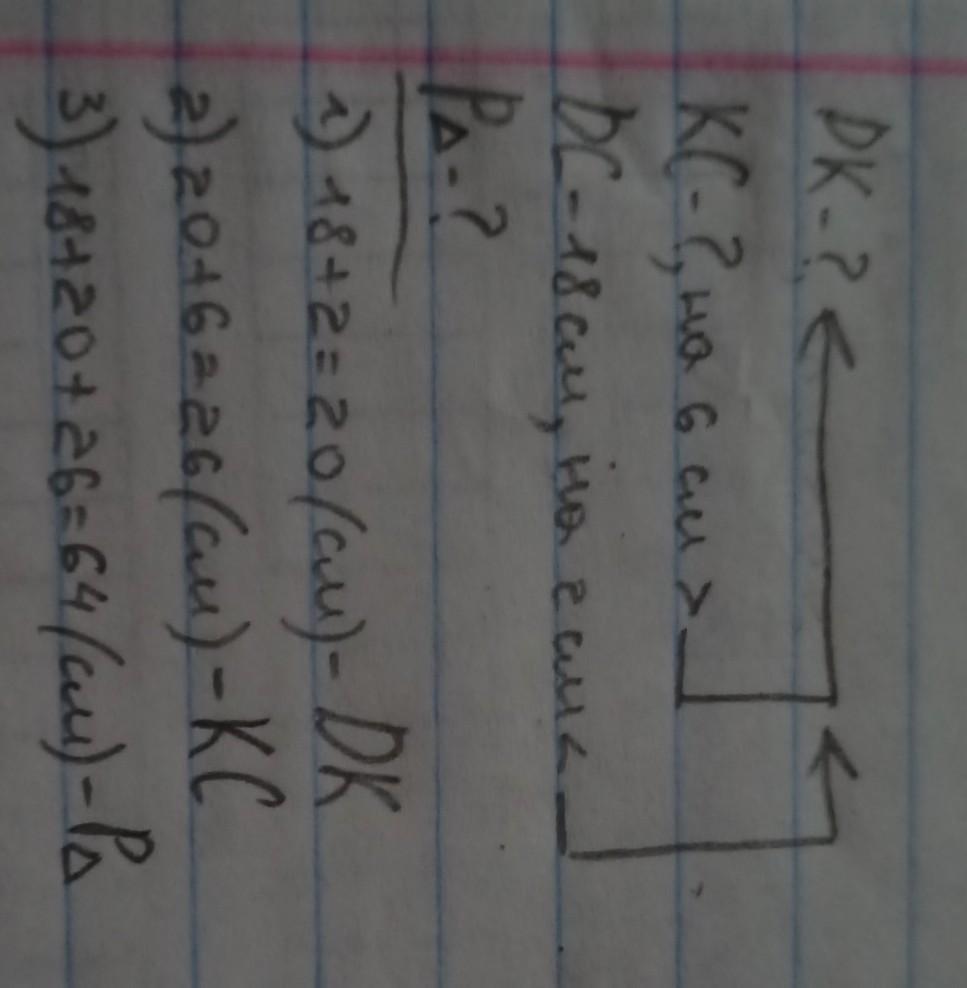 DK - ?
KC - ?, на 6 см >
DC - 18 см, на 2 см <
P△ - ?
1) 18 + 2 = 20 (см) - DK
2) 20 + 6 = 26 (см) - KC
3) 18 + 20 + 26 = 64 (см) - P△